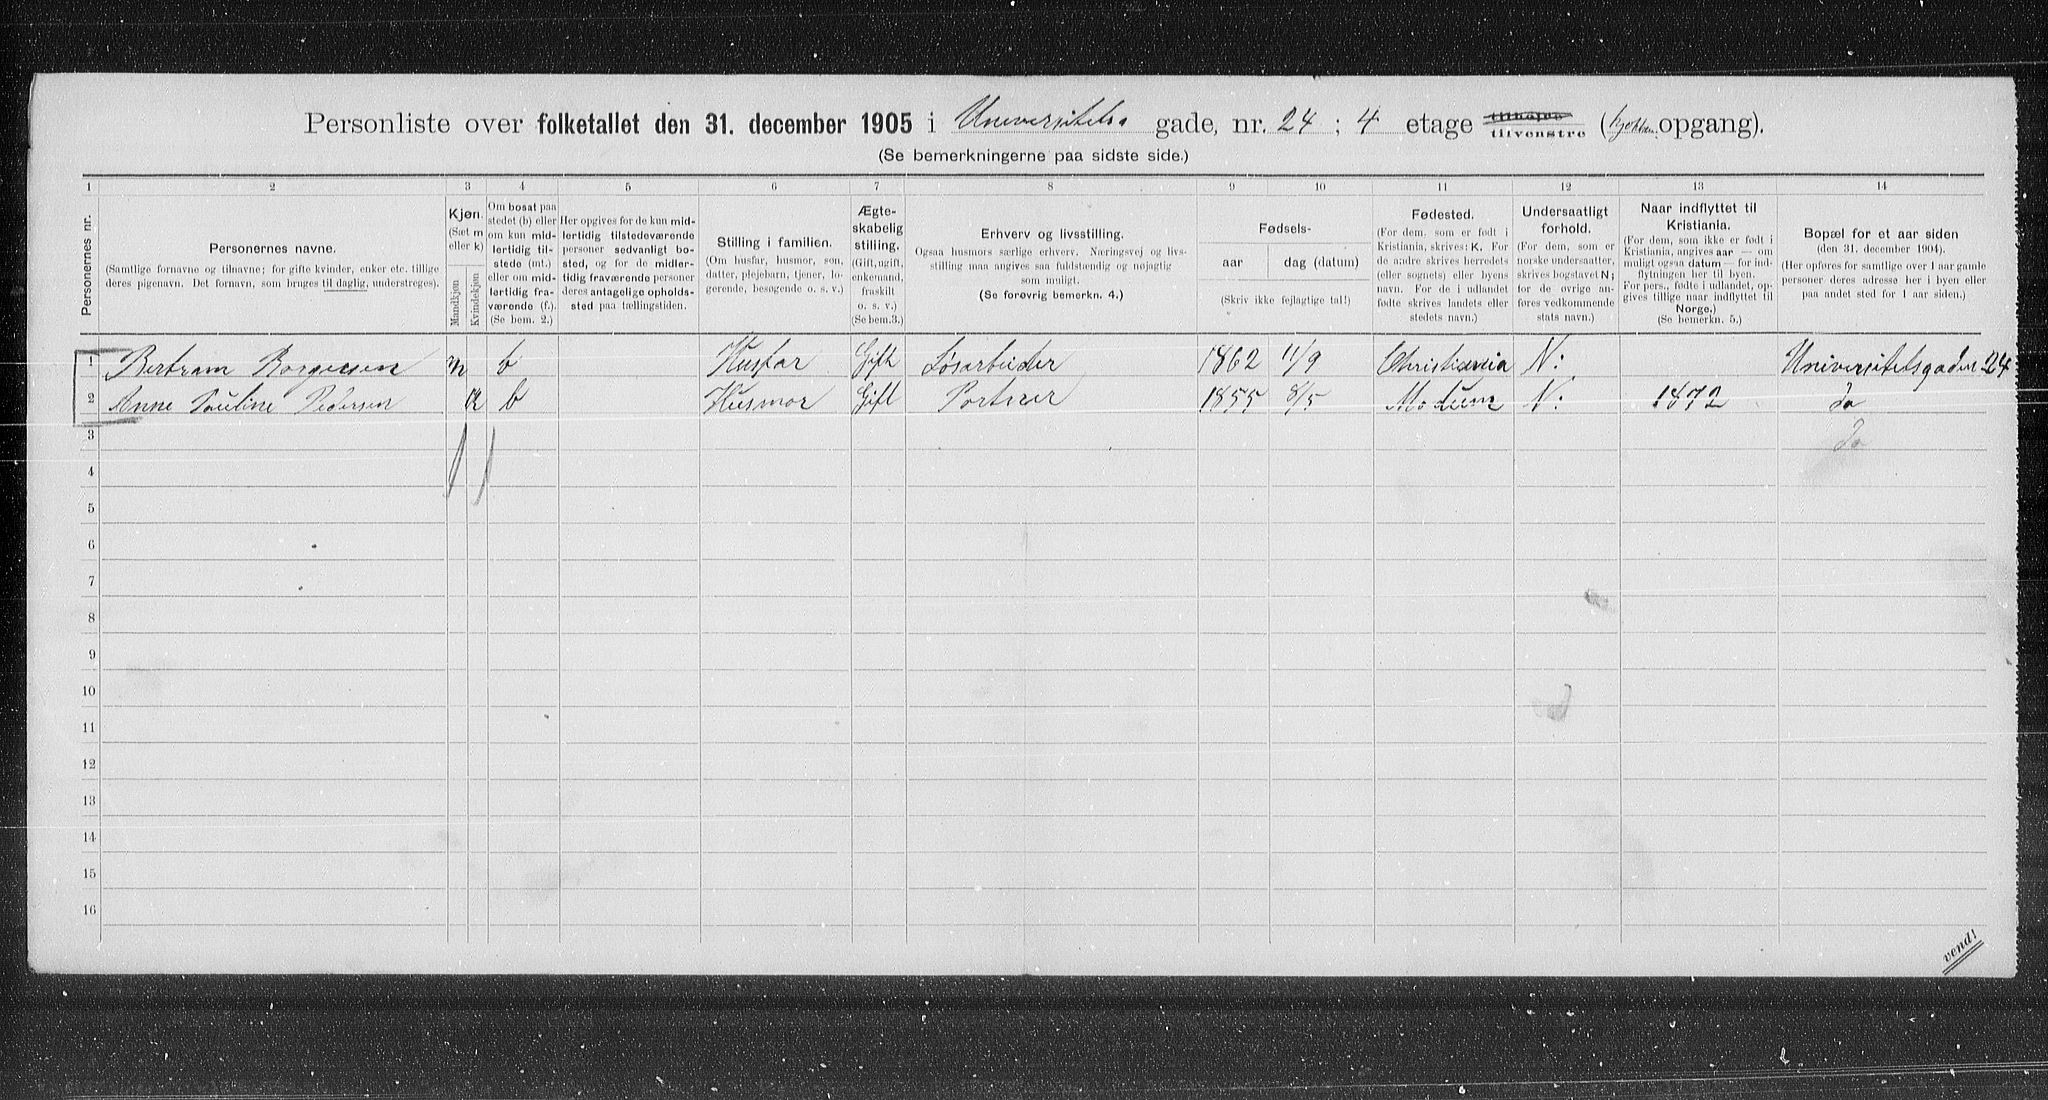 Personliste over folketallet den 31. december 1905 i Universitets gade, nr. 24 ; 4 etage tilhøjre tilvenstre (kjøkken opgang).
(Se bemerkningerne paa sidste side.)
1 2 3 4 5 6 7 8 9 10 11 12 13 14
Personernes nr.
Personernes navne.
(Samtlige fornavne og tilnavne; for gifte kvinder, enker etc. tillige
deres pigenavn. Det fornavn, som bruges til daglig, understreges).
Kjøn.
(Sæt m
eller k)
Mandkjøn
Kvindekjøn
Om bosat paa
stedet (b) eller
om kun mid-
lertidig til-
stede (mt.)
eller om mid-
lertidig fra-
værende (f.).
(Se bem. 2.)
Her opgives for de kun mid-
lertidig tilstedeværende
personer sedvanligt bo-
sted, og for de midler-
tidig fraværende personer
deres antagelige opholds-
sted paa tællingstiden.
Stilling i familien.
(Om husfar, husmor, søn,
datter, plejebarn, tjener, lo-
gerende, besøgende o. s. v.)
Ægte-
skabelig
stilling.
(Gift, ugift,
enkemand,
fraskilt
o. s. v.)
(Se bem.3.)
Erhverv og livsstilling.
Ogsaa husmors særlige erhverv. Næringsvej og livs-
stilling maa angives saa fuldstændig og nøjagtig
som muligt.
(Se forøvrig bemerkn. 4.)
Fødsels-
aar
dag (datum)
(Skriv ikke fejlagtige tal!)
Fødested.
(For dem, som er født i
Kristiania, skrives: K. For
de andre skrives herredets
(eller sognets) eller byens
navn. For de i udlandet
fødte skrives landets eller
stedets navn.)
Undersaatligt
forhold.
(For dem, som er
norske undersaatter,
skrives bogstavet N;
for de øvrige an-
føres vedkommende
stats navn.)
Naar indflyttet til
Kristiania.
(For dem, som ikke er født i
Kristiania, angives aar — om
muligt ogsaa datum — for ind-
flytningen her til byen.
For pers., fødte i udlandet, op-
gives tillige naar indflyttet til
Norge.)
(Se bemerkn. 5.)
Bopæl for et aar siden
(den 31. december 1904).
(Her opføres for samtlige over 1 aar gamle
personer deres adresse her i byen eller
paa andet sted for 1 aar siden.)
1 Bertram Borgersen m b Husfar Gift Løsarbeider 1862 11/9 Christiania N: Universitetsgaden 24
2 Anne Pauline Pedersen k b Husmor Gift Portner 1855 8/5 Modum N: 1872 Do
3 Do
4
5
6
7
8
9
10
11
12
13
14
15
16
vend!